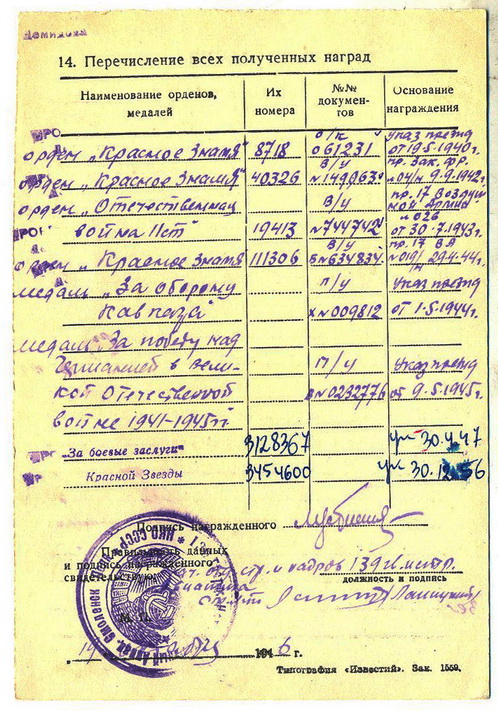 14. Перечисление всех полученных наград
Наименование орденов, медалей
Их номера
№№ документов
Основание награждения
орден „Красное Знамя" 8718 о/к 061231 указ през от 19.5.1940г.
орден „Красное Знамя" 40326 в/у №149963 пр. Зак. фр. №04/н 9.9.1942г.
орден „Отечественная в/у пр. 17 Воздушной Армии
война II ст" 19413 №744742 №026 от 30.7.1943г.
орден „Красное Знамя" 111306 в/у Б№634834 пр. 17 ВА №019/н 29.4.44г.
медаль „За оборону п/у указ през
Кавказа" х№009812 от 1.5.1944г.
медаль „За победу над
Германией в вели- п/у указ през
кой Отечественной №0232776 от 9.5.1945г.
войне 1941-1945гг
„За боевые заслуги" 3128367 ук 30.4.47
Красной Звезды 3454600 ук 30.12.56
Подпись награжденного
Правильность данных
и подпись награжденного
свидетельствую:
должность и подпись
М. П.
194 6 г.
Типография «Известий». Зак. 1559.